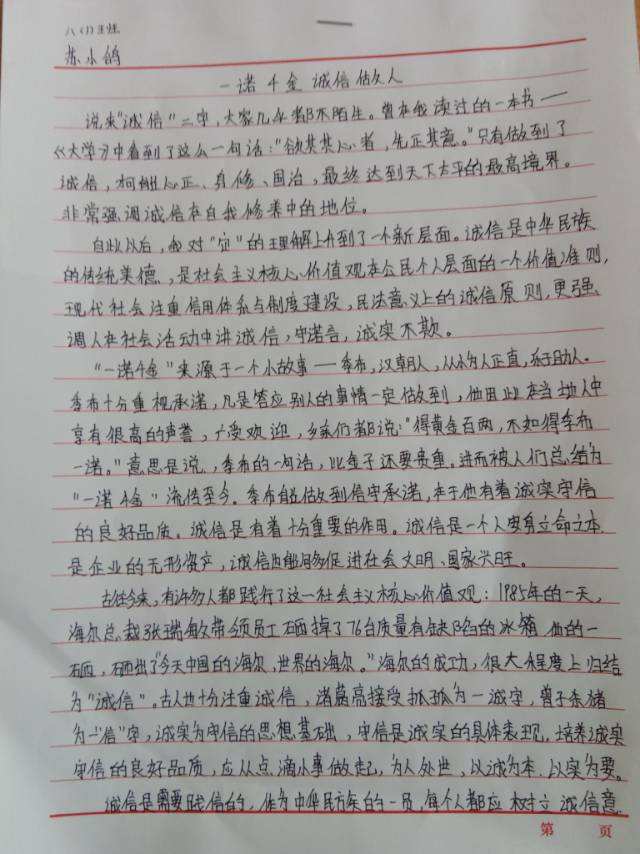 八(1)班
苏小鸽
一诺千金 诚信做人
说来"诚信"二字,大家几乎都不陌生。曾在我读过的一本书——
《大学》中看到了这么一句话:"欲其其心者,先正其意。"只有做到了
诚信,才能心正、身修、国治,最终达到天下太平的最高境界。
非常强调诚信在自我修养中的地位。
自此以后,我对"它"的理解上升到了一个新层面。诚信是中华民族
的传统美德,是社会主义核心价值观在公民个人层面的一个价值准则,
现代社会注重信用体系与制度建设,民法意义上的诚信原则,更强
调人在社会活动中讲诚信,守诺言,诚实不欺。
"一诺千金"来源于一个小故事——季布,汉朝人,从小为人正直,乐于助人。
季布十分重视承诺,凡是答应别人的事情一定做到,他因此在当地人中
享有很高的声誉,广受欢迎,乡亲们都说:"得黄金百两,不如得季布
一诺。"意思是说,季布的一句话,比金子还要贵重。进而被人们总结为
"一诺千金"流传至今。季布能做到信守承诺,在于他有着诚实守信
的良好品质。诚信是有着十分重要的作用。诚信是一个人安身立命之本
是企业的无形资产,诚信也能够促进社会文明、国家兴旺。
古往今来,有许多人都践行了这一社会主义核心价值观:1985年的一天,
海尔总裁张瑞敏带领员工砸掉了76台质量有缺陷的冰箱,他的一
砸,砸出了"今天中国的海尔,世界的海尔。"海尔的成功,很大程度上归结
为"诚信"。古人也十分注重诚信,诸葛亮接受托孤为一诚字,曾子杀猪
为一"信"字,诚实为守信的思想基础,守信是诚实的具体表现,培养诚实
守信的良好品质,应从点滴小事做起,为人处世,以诚为本,以实为要。
诚信是需要践信的,作为中华民族的一员,每个人都应树立诚信意
第 页